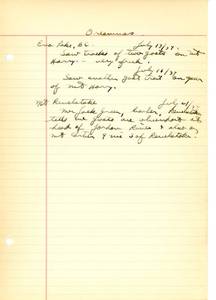 Oreamnos
Eva Lake, BC July 13/27.
Saw tracks of two goats on Mt
Harry - very fresh.
July 16/27
Saw another goat trail on
of Mt Harry.
Mt Revelstoke July 21/27
Mr. Jack Green, Revelstoke
tells me goats are at
head of Jordan River & also on
Mt & S of Revelstoke.